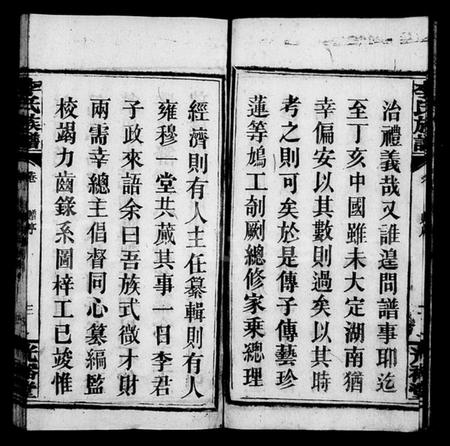 治禮義哉又誰遑問譜事耶迄
至丁亥中國雖未大定湖南猶
幸偏安以其數則過矣以其時
考之則可矣於是傳子傳藝珍
蓮等鳩工剞劂總修家乘總理
李氏族譜
經濟則有人主任纂輯則有人
雍穆一堂共蕆其事一日李君
子政來語余曰吾族式微才財
兩需幸總主倡督同心纂編監
校竭力齒錄系圖梓工已竣惟